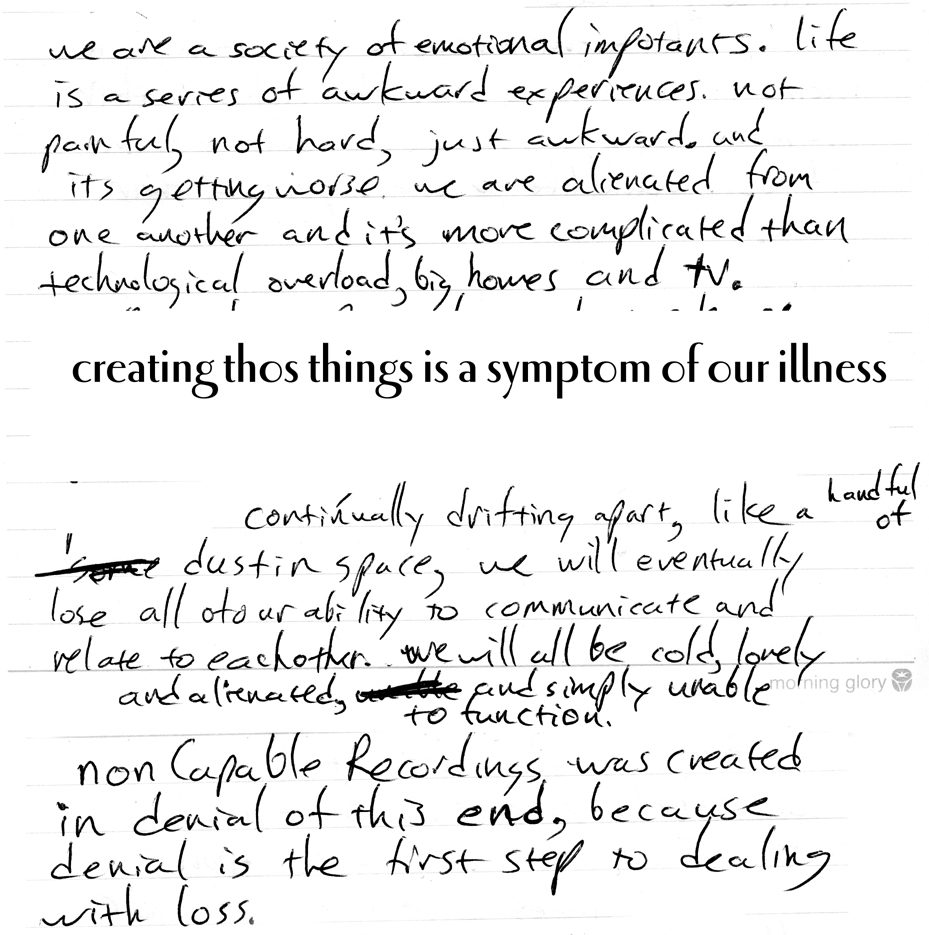 we are a society of emotional impotants. life
is a series of awkward experiences. not
painful, not hard, just awkward. and
its getting worse. we are alienated from
one another and it's more complicated than
technological overload, big homes and tv.
creating thos things is a symptom of our illness
continually drifting apart, like a handful of
dust in space, we will eventually
lose all of our ability to communicate and
relate to eachother. we will all be cold, lovely
and alienated, and simply unable
to function.
morning glory
non Capable Recordings was created
in denial of this end, because
denial is the first step to dealing
with loss.